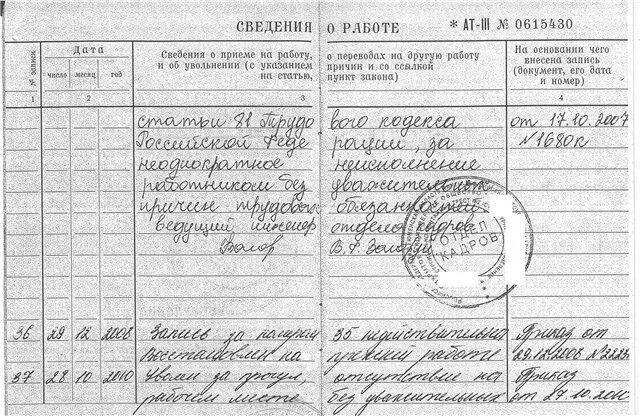 СВЕДЕНИЯ О РАБОТЕ * АТ-III № 0615430
№ записи
Дата
число месяц год
Сведения о приеме на работу, о переводах на другую работу
и об увольнении (с указанием причин и со ссылкой
на статью, пункт закона)
На основании чего
внесена запись
(документ, его дата
и номер)
1 2 3 4
статьи 81 Трудового кодекса от 17.10.2007
Российской Федерации, за N1680к
неоднократное неисполнение
работником без уважительных
причин трудовых обязанностей
ведущий инженер отдела кадров
В.А.
ОТДЕЛ
КАДРОВ
36 29 12 2008 Запись за номером 35 недействительна Приказ от
Восстановлен на прежней работе 29.12.2008 N
37 28 10 2010 Уволен за прогул, отсутствие на Приказ
рабочем месте без уважительных от 27.10.